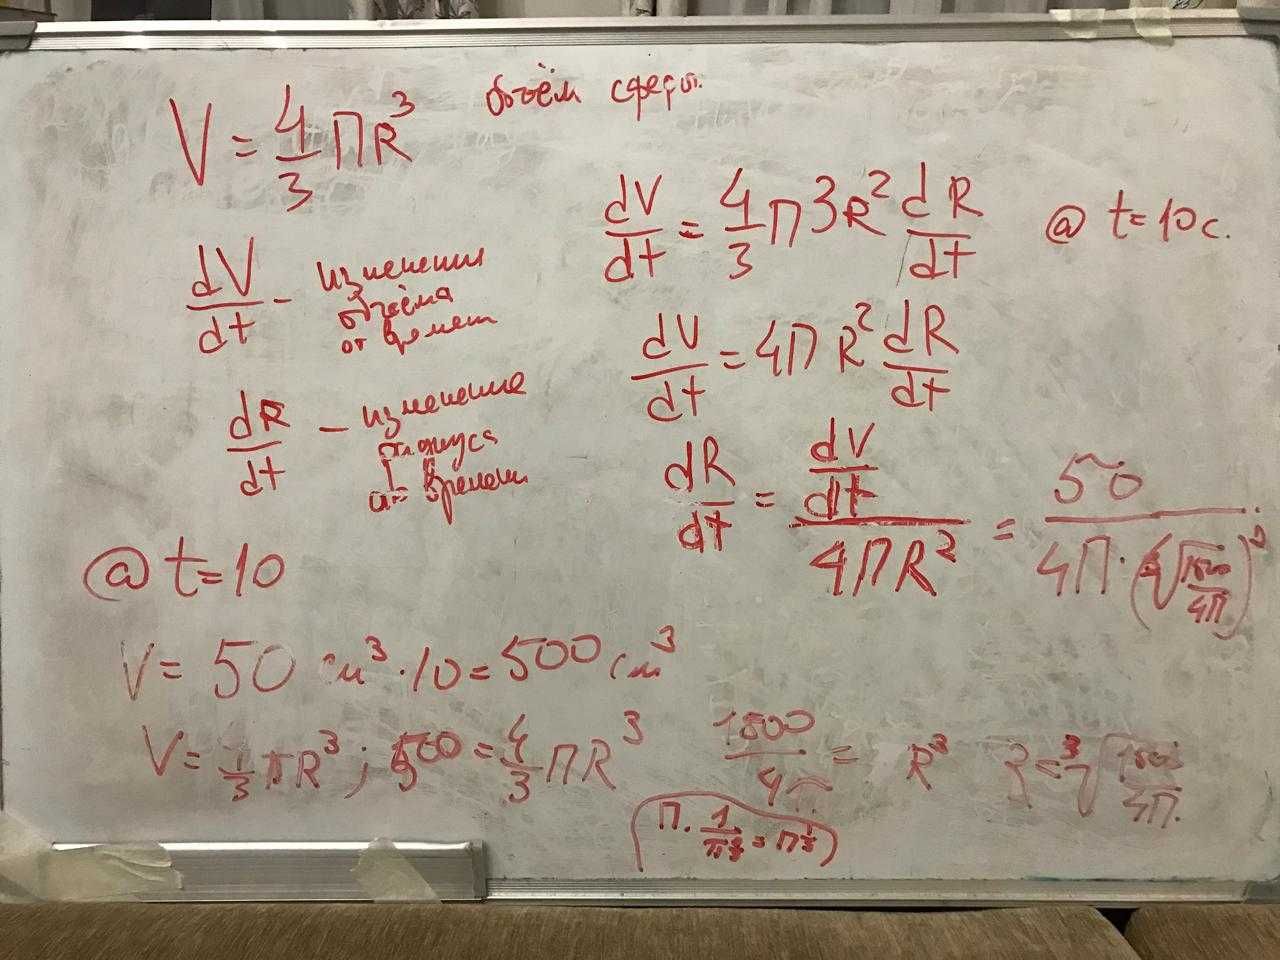 V = 4/3 ПR³
объём сферы.
dV/dt - изменения
объёма
от времени
dR/dt - изменение
радиуса
от времени
@ t=10
V= 50 см³ · 10 = 500 см³
V= 4/3 πR³ ; 500 = 4/3 ПR³
1500/4π = R³ R = ³√(1500/4П)
dV/dt = 4/3 П 3R² dR/dt @ t=10 с.
dV/dt = 4П R² dR/dt
dR/dt = (dV/dt)/(4ПR²) = 50/(4П·(³√(1500/4П))²)